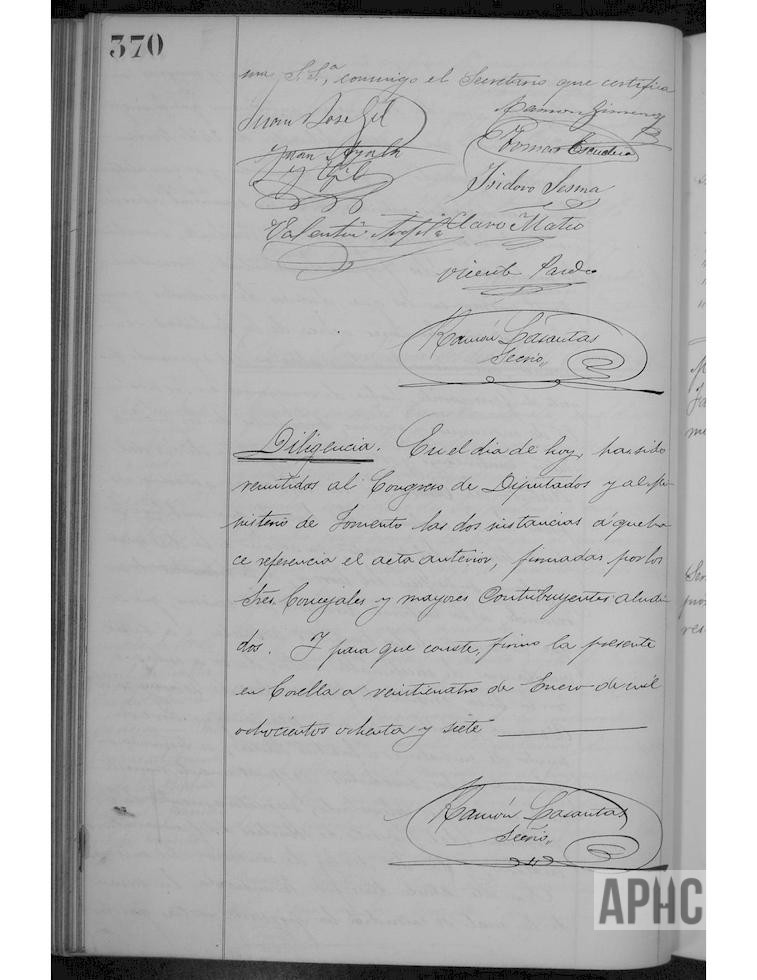 370
SS.ª, conmigo el Secretario que certifica
Juan Jose Gil
Ramon Jimenez
Juan Ayala
y Gil
Tomas Escudero
Isidoro Sesma
Valentin
Claro Mateo
Vicente Pardo
Ramón Lasantas
Secrio,,
Diligencia. En el dia de hoy, han sido
remitidas al Congreso de Diputados y al Mi-
nisterio de Fomento las dos instancias á que ha-
ce referencia el acta anterior, firmadas por los
Sres. Concejales y mayores Contribuyentes aludi-
dos. Y para que conste, firmo la presente
en Corella a veinticuatro de Enero de mil
ochocientos ochenta y siete
Ramón Lasantas
Secrio,,
APHC